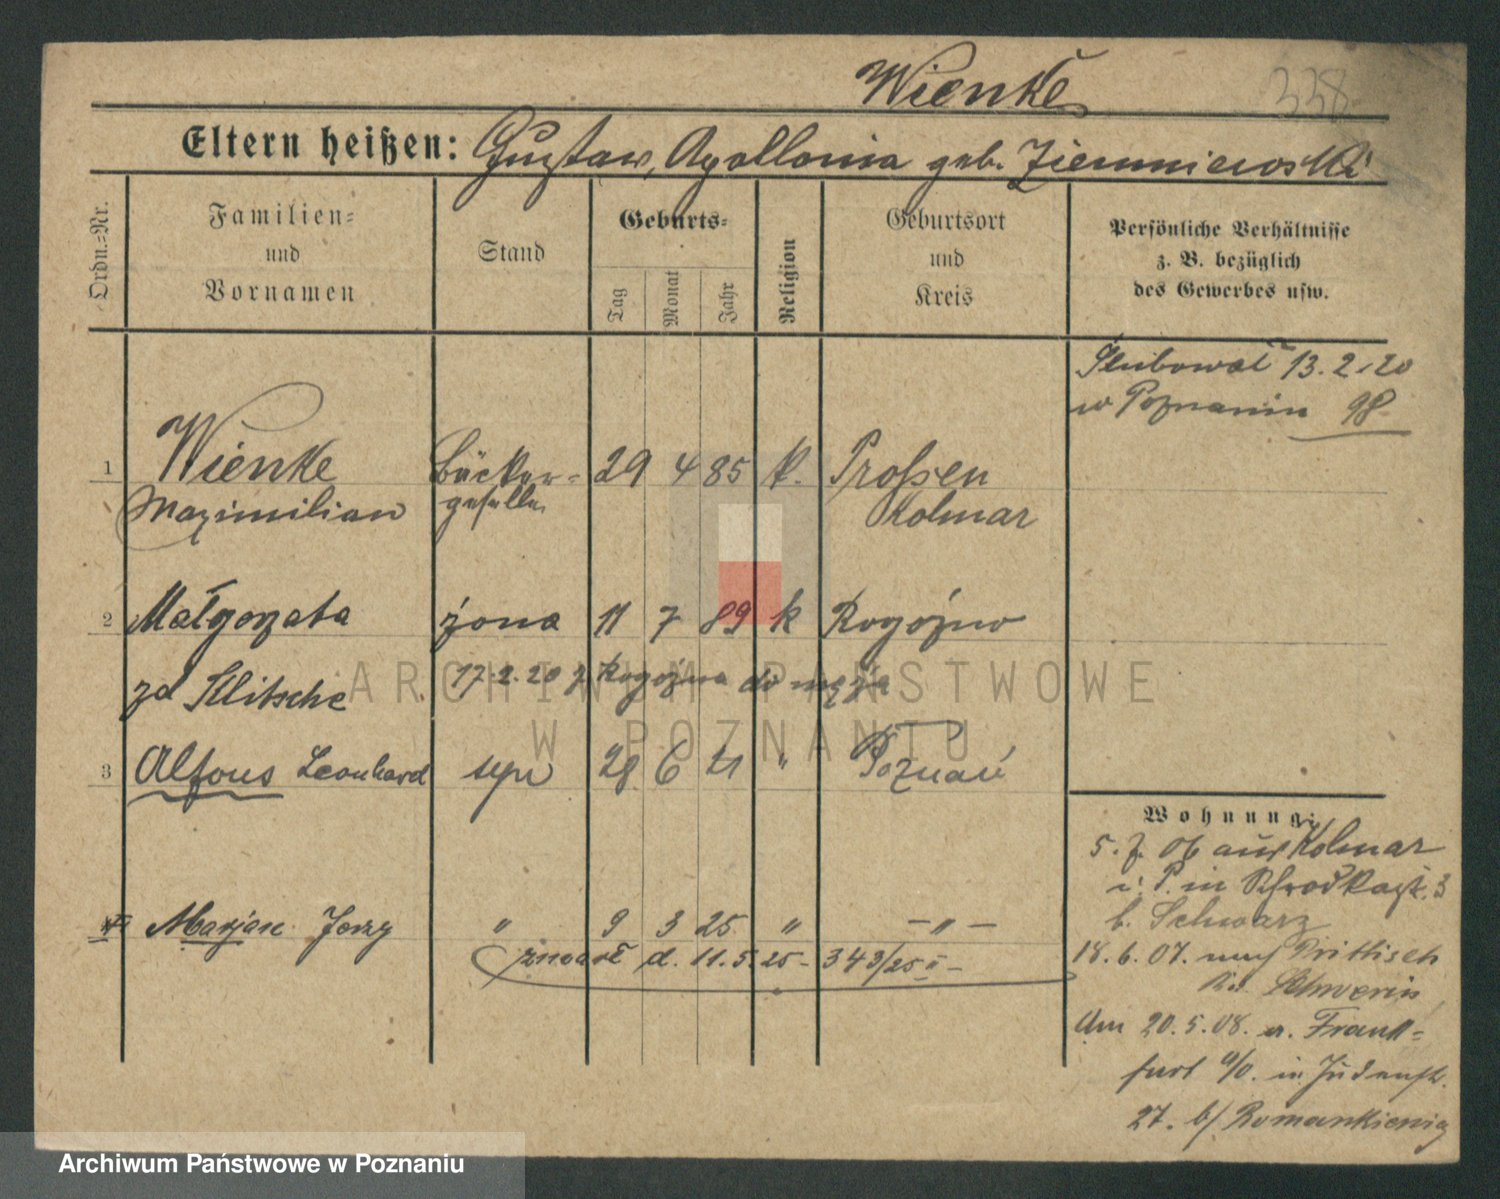 Wienke
338
Eltern heißen: Gustaw, Apollonia geb. Ziemniewoska
Ordn.=Nr.
Familien=
und
Vornamen
Stand
Geburts=
Tag
Monat
Jahr
Religion
Geburtsort
und
Kreis
Persönliche Verhältnisse
z. B. bezüglich
des Gewerbes usw.
Slubował 13.2.20
w Poznaniu 98
1 Wienke Bäcker= 29 4 85 k. Proßen
Maximilian geselle Kolmar
2 Małgorzata żona 11 7 89 k Rogoźno
zd Klitsche 17.2.20 z Rogoźna do męża
3 Alfons Leonhard syn 28 6 21 " Poznań
Marjan Jerzy " 9 3 25 " – " –
zmarł d. 11.5.25 – 343/25 II –
Wohnung:
5. 7. 06 aus Kolmar
i. P. in Schrodkastr. 3
b. Schwarz
18. 6. 07. nach Prittisch
Kr. Schwerin
Am 20. 5. 08. a. Frank=
furt a/O. in Judenstr.
27. b/ Romankienig
ARCHIWUM PAŃSTWOWE
W POZNANIU
Archiwum Państwowe w Poznaniu